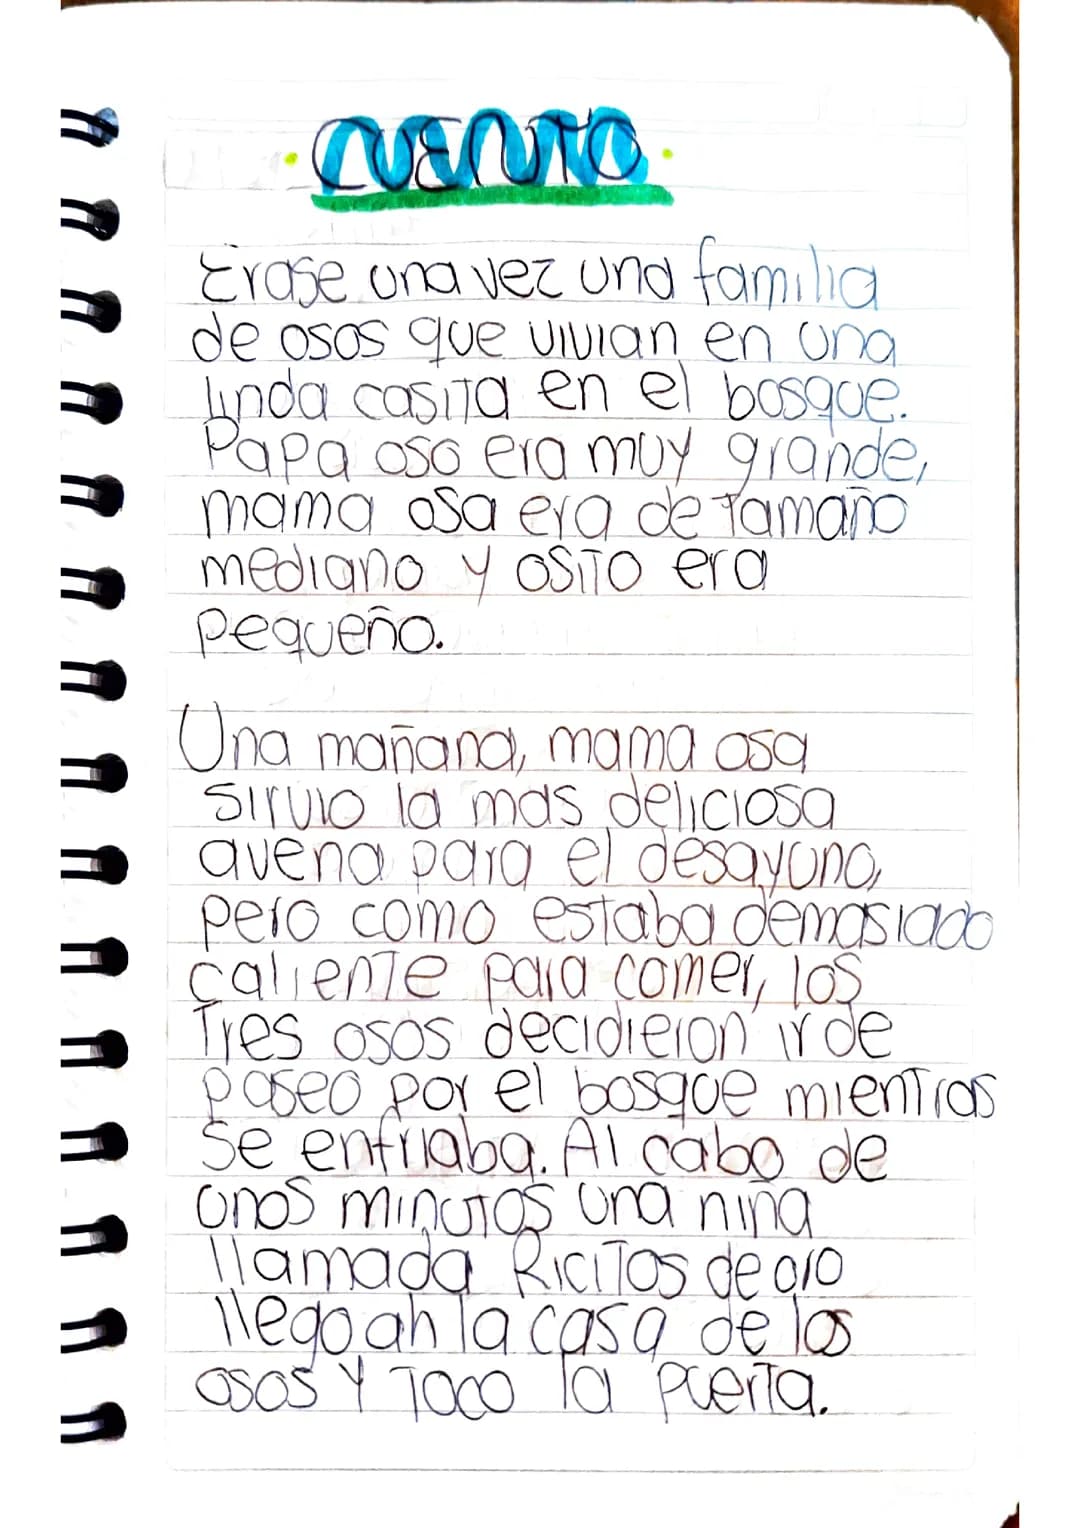 · CUENTO ·
Erase una vez una familia
de osos que vivian en una
linda casita en el bosque.
Papa oso era muy grande,
mama osa era de tamaño
mediano y osito era
pequeño.
Una mañana, mama osa
sirvio la mas deliciosa
avena para el desayuno,
pero como estaba demasiado
caliente para comer, los
Tres osos decidieron ir de
paseo por el bosque mientras
se enfriaba. Al cabo de
unos minutos una niña
llamada Ricitos de oro
llego ah la casa de los
osos y toco la puerta.